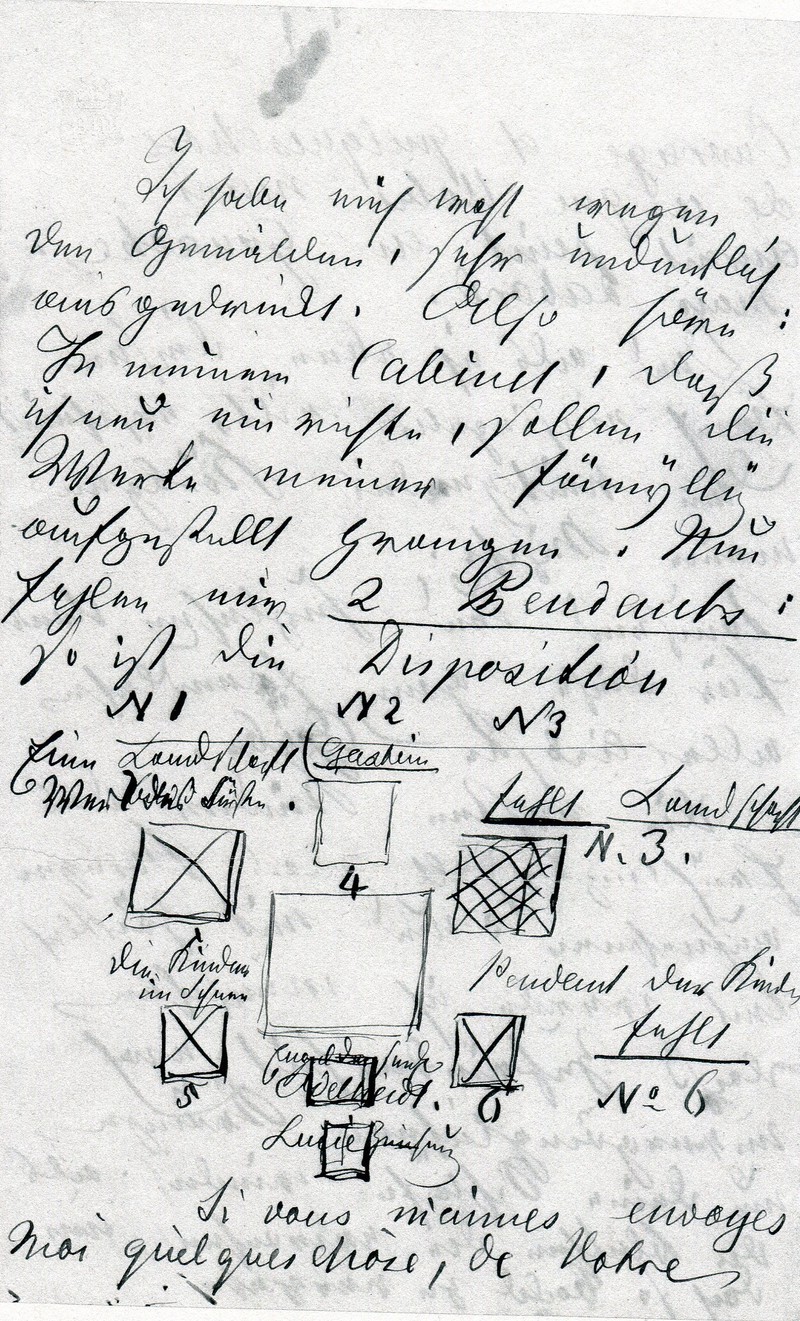 Ich habe mich wohl wegen
den Gemälden, sehr undeutlich
ausgedrückt. Also höre:
In meinem Cabinet, daß
ich neu einrichte, sollen die
Werke meiner
aufgestellt prangen. Nun
fehlen mir 2 Pendants:
so ist die Disposition
N 1 N 2 N 3
Eine Landschaft (Gastein
fehlt Landschaft
N. 3.
4
die Kinder
im Schnee
Pendant der Kinder
fehlt
No 6
5
Adelheidt.
6
Si vous m'aimes envoyes
moi quelquechose, de Votre